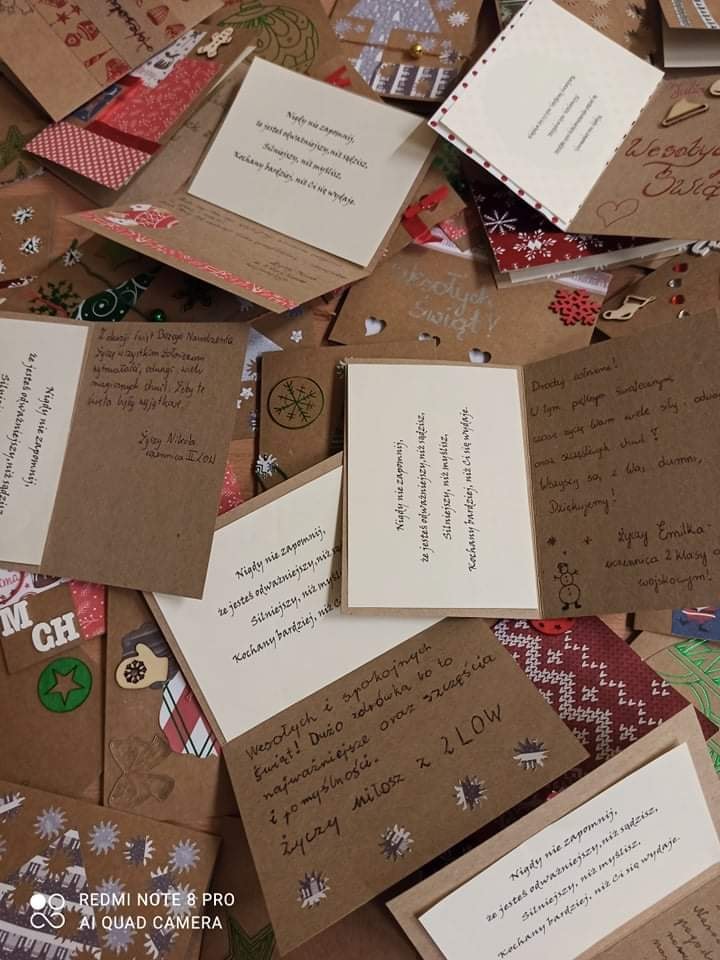 Nigdy nie zapomnij,
że jesteś odważniejszy, niż sądzisz,
Silniejszy, niż myślisz,
Kochany bardziej, niż Ci się wydaje.
Wesołych
Świąt
Wesołych
Świąt!
Nigdy nie zapomnij,
że jesteś odważniejszy, niż sądzisz
Silniejszy, niż
Z okazji Świąt Bożego Narodzenia
życzę wszystkim żołnierzom
wytrwałości, odwagi, wielu
magicznych chwil. Żeby te
święta były wyjątkowe!
Życzy Nikola
uczennica II LOW
Nigdy nie zapomnij,
że jesteś odważniejszy, niż sądzisz,
Silniejszy, niż myślisz,
Kochany bardziej, niż Ci się wydaje.
Drodzy żołnierze!
W tym pięknym świątecznym
czasie życzę Wam wiele siły, odwa
oraz szczęśliwych chwil!
Wszyscy są z Was dumni,
Dziękujemy!
Życzy Emilka
uczennica 2 klasy o
wojskowym!
Nigdy nie zapomnij,
że jesteś odważniejszy, niż s
Silniejszy, niż myśl
Kochany bardziej, niż C
Wesołych i spokojnych
Świąt! Dużo zdrówka bo to
najważniejsze oraz szczęścia
i pomyślności.
Życzy Miłosz z 2LOW
M
CH
Nigdy nie zapomnij,
że jesteś odważniejszy, niż sądzisz,
Silniejszy, niż myślisz,
Kochany bardziej, niż Ci się wydaje.
REDMI NOTE 8 PRO
AI QUAD CAMERA